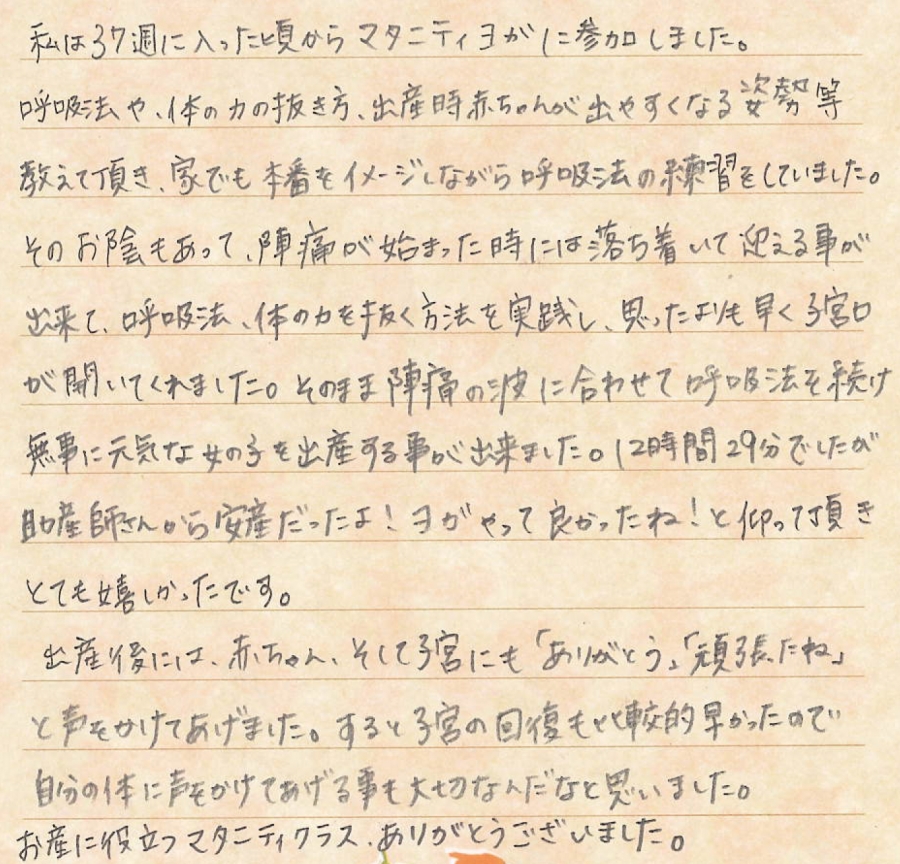 私は37週に入った頃からマタニティヨガに参加しました。
呼吸法や、体の力の抜き方、出産時赤ちゃんが出やすくなる姿勢等
教えて頂き、家でも本番をイメージしながら呼吸法の練習をしていました。
そのお陰もあって、陣痛が始まった時には落ち着いて迎える事が
出来て、呼吸法、体の力を抜く方法を実践し、思ったよりも早く子宮口
が開いてくれました。そのまま陣痛の波に合わせて呼吸法を続け
無事に元気な女の子を出産する事が出来ました。12時間29分でしたが
助産師さんから安産だったよ!ヨガやって良かったね!と仰って頂き
とても嬉しかったです。
出産後には、赤ちゃん、そして子宮にも「ありがとう」「頑張たね」
と声をかけてあげました。すると子宮の回復も比較的早かったので
自分の体に声をかけてあげる事も大切なんだなと思いました。
お産に役立つマタニティクラス、ありがとうございました。